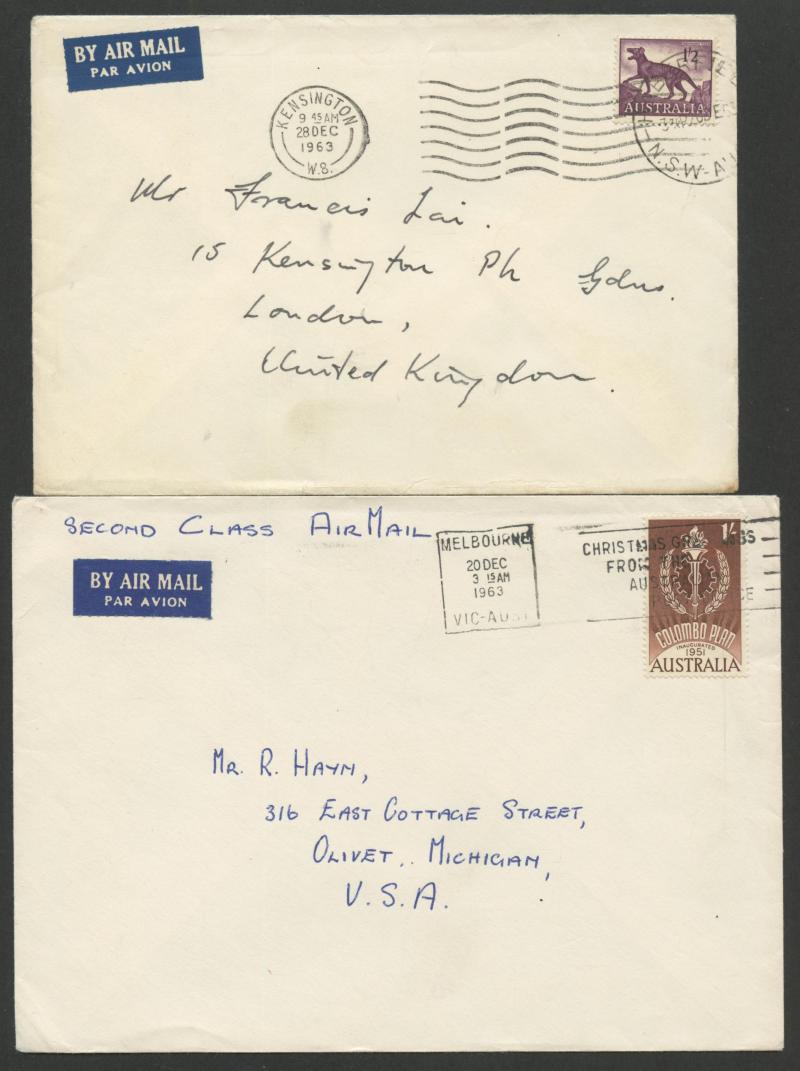 BY AIR MAIL
PAR AVION
KENSINGTON
9 45 AM
28 DEC
1963
W.8.
1/2
AUSTRALIA
N.S.W-AU
Mr Francis Lai.
15 Kensington Gdns.
London,
United Kingdom.
SECOND CLASS AIR MAIL
BY AIR MAIL
PAR AVION
MELBOURNE
20 DEC
3 15 AM
1963
VIC-AUST
CHRISTMAS
FROM
AUS
CE
1/-
COLOMBO PLAN
INAUGURATED
1951
AUSTRALIA
MR. R. HAYM,
316 EAST COTTAGE STREET,
OLIVET, MICHIGAN,
U.S.A.